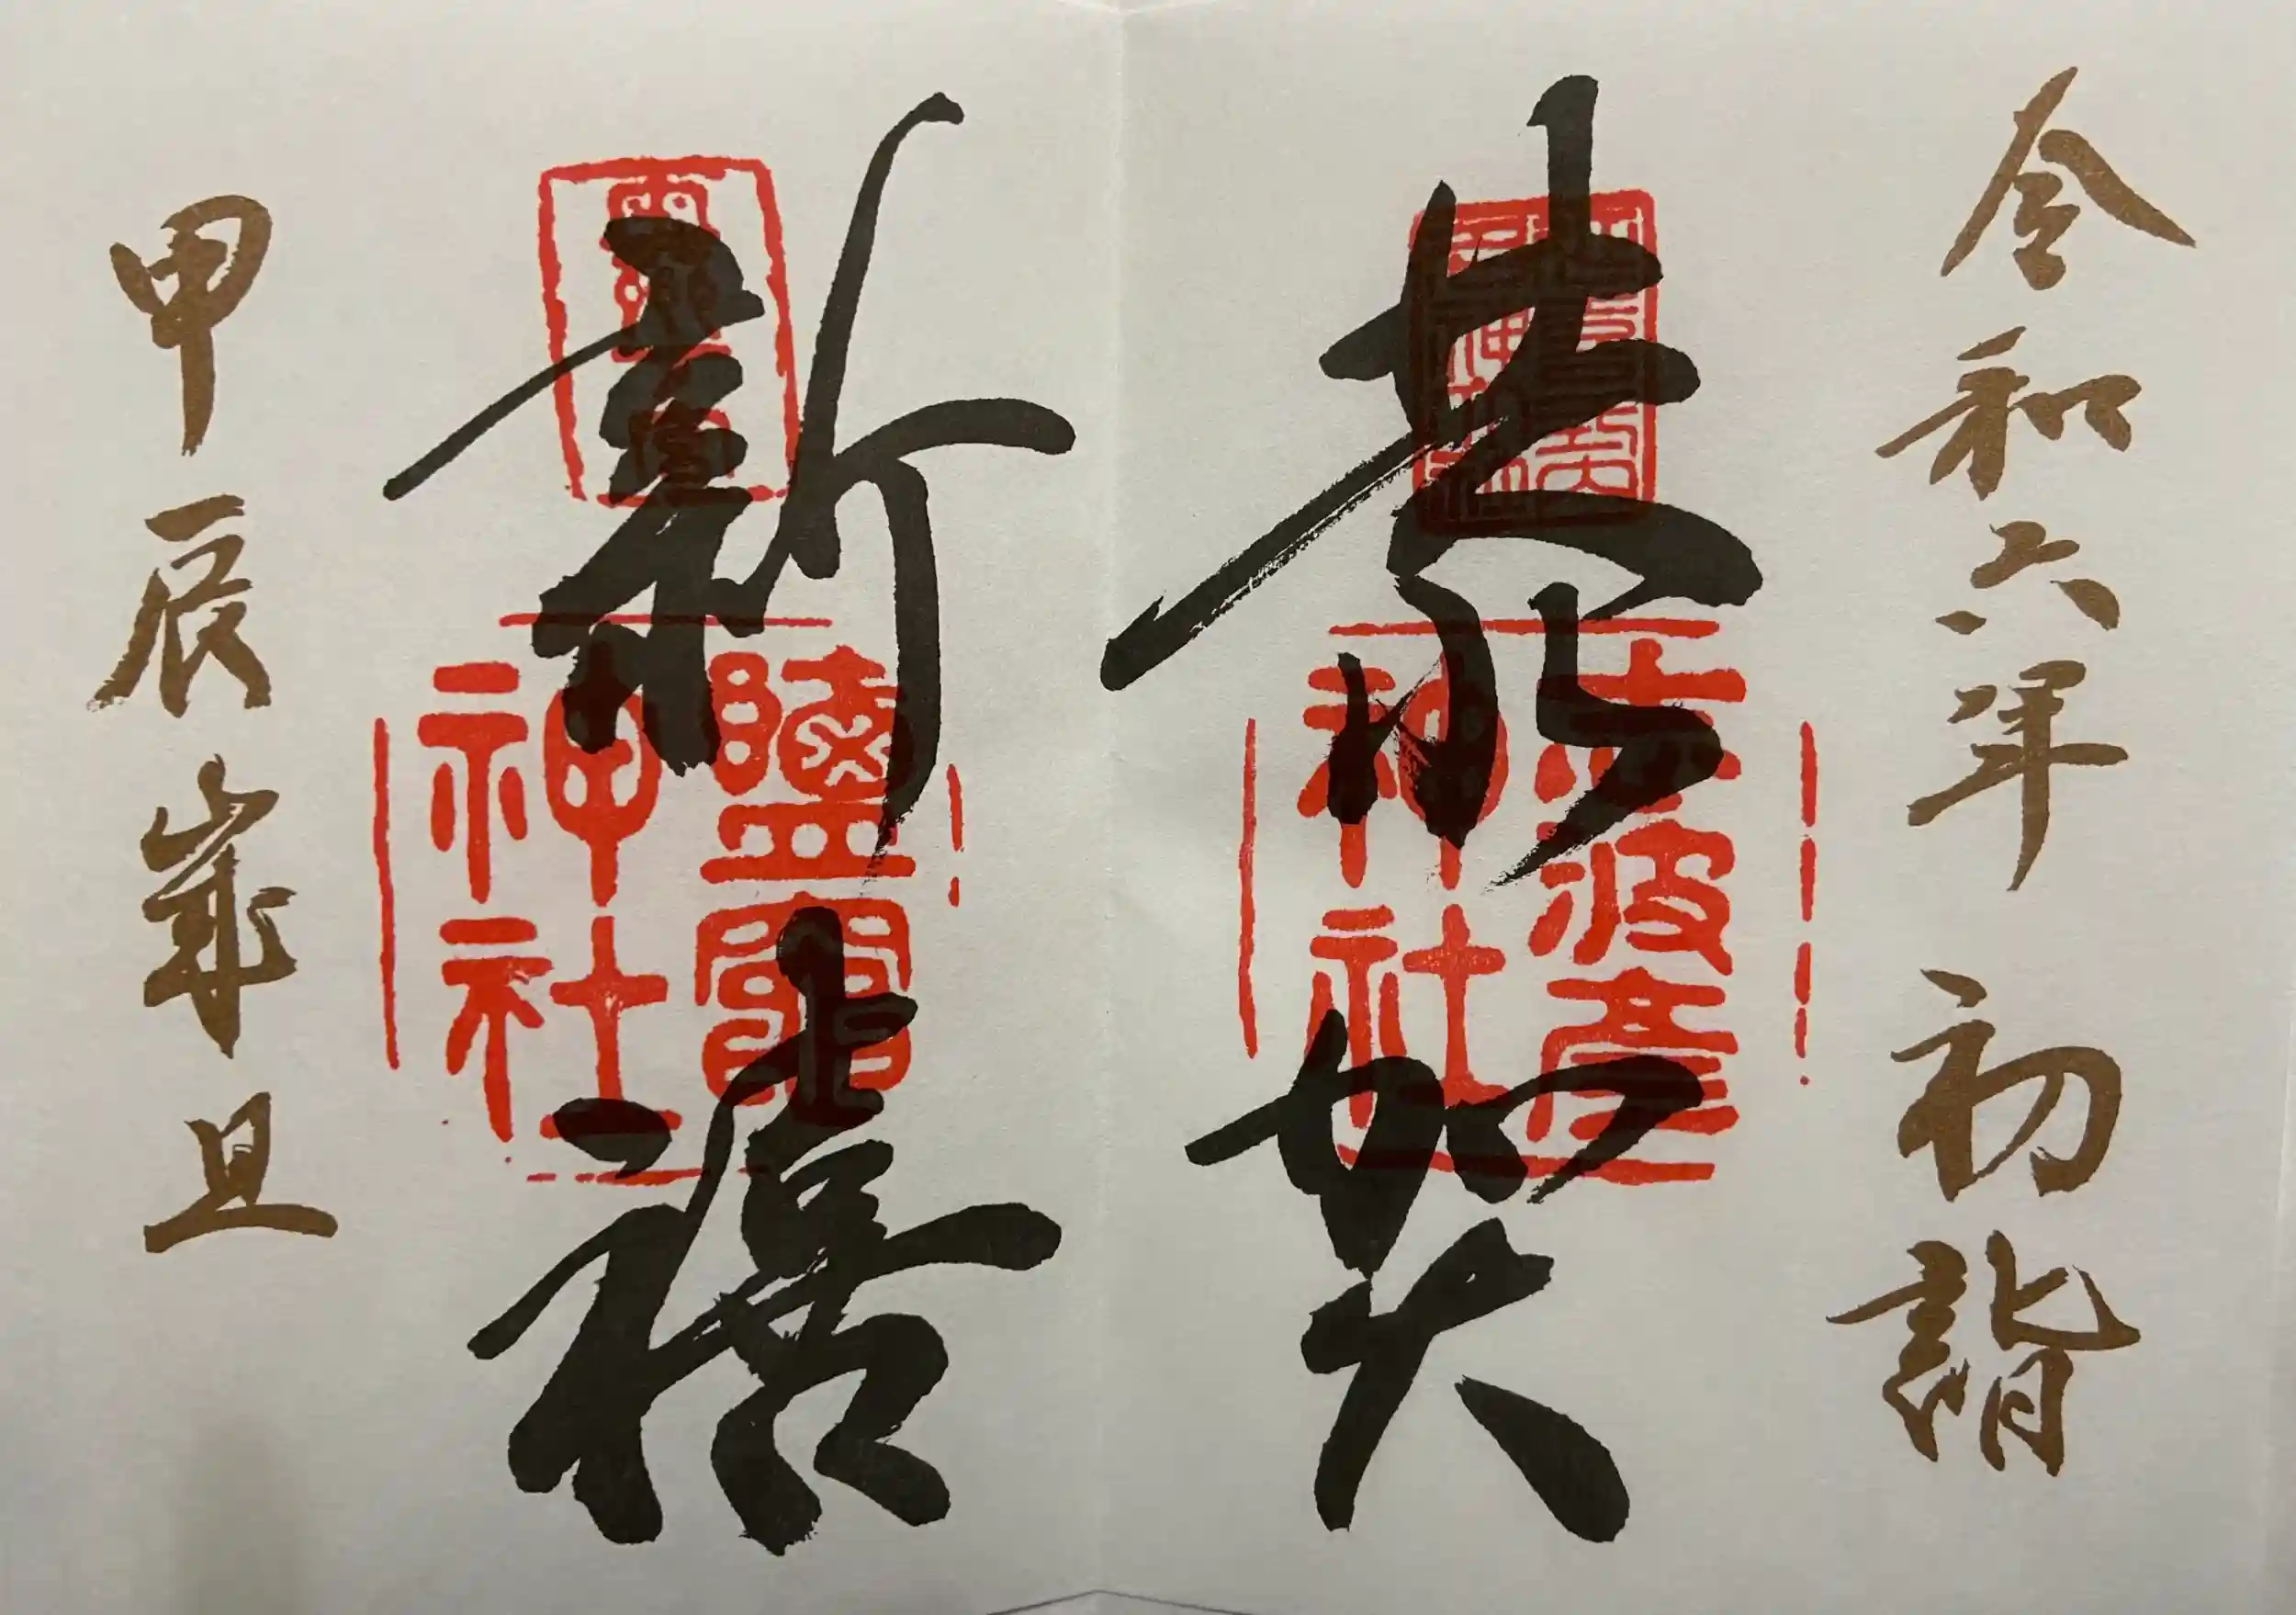 令和六年 初詣
恭賀
新禧
甲辰歳旦
志波彦神社
鹽竈神社